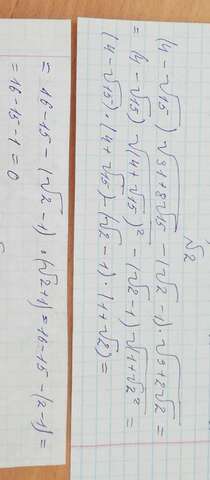 √2
(4-√15) √31+8√15 - (√2-1)·√3+2√2 =
= (4-√15) √(4+√15)² - (√2-1) √1+√2² =
(4-√15)·(4+√15)-(√2-1)·(1+√2) =
= 16-15-(√2-1)·(√2+1)=16-15-(2-1)=
=16-15-1=0